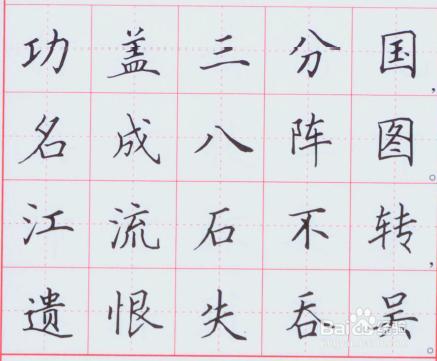 功盖三分国，
名成八阵图。
江流石不转，
遗恨失吞吴。
Baidu经验